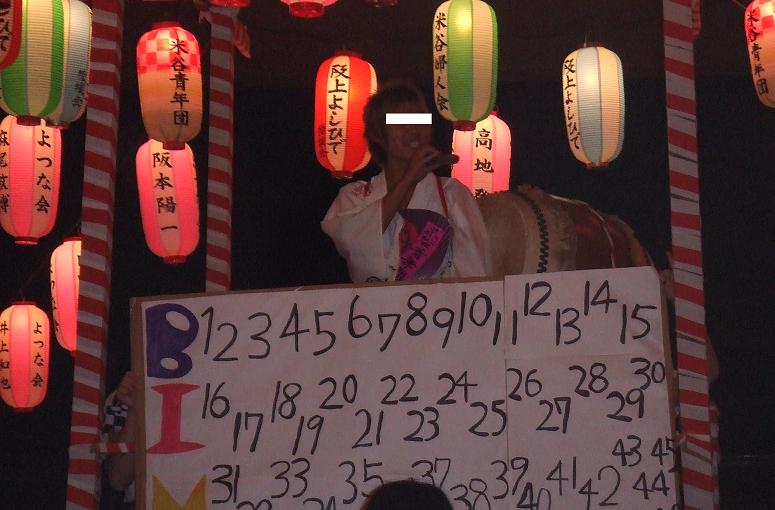 米谷青年団
米谷婦人会
阪上よしひで
阪上よしひで
米谷青年団
よつな会
阪本陽一
高地
よつな会
井上和也
B 1 2 3 4 5 6 7 8 9 10 11 12 13 14 15
I 16 17 18 19 20 21 22 23 24 25 26 27 28 29 30
31 33 35 37 38 39 40 41 42 43 44 45